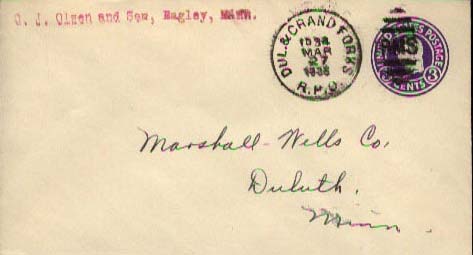 O. J. Olsen and Son, Bagley, MINN.
DUL. & GRAND FORKS
MAR
27
R.P.O.
UNITED STATES POSTAGE
RMS
3 CENTS
Marshall-Wells Co.
Duluth.
Minn.